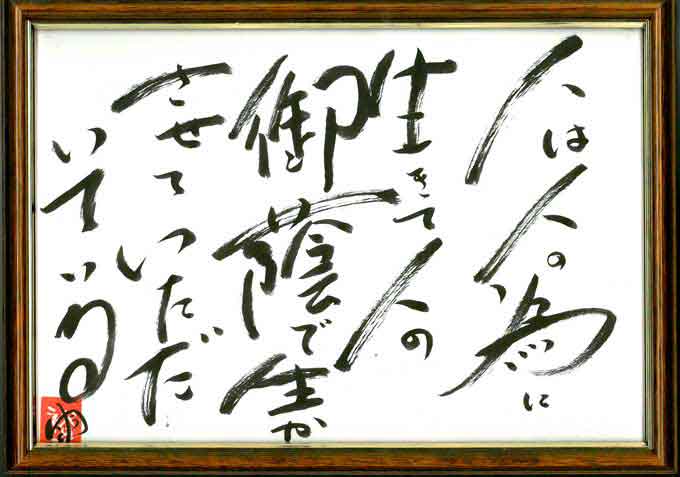 人は人の為に
生きて人の
御蔭で生か
させていただ
いている
ゆ